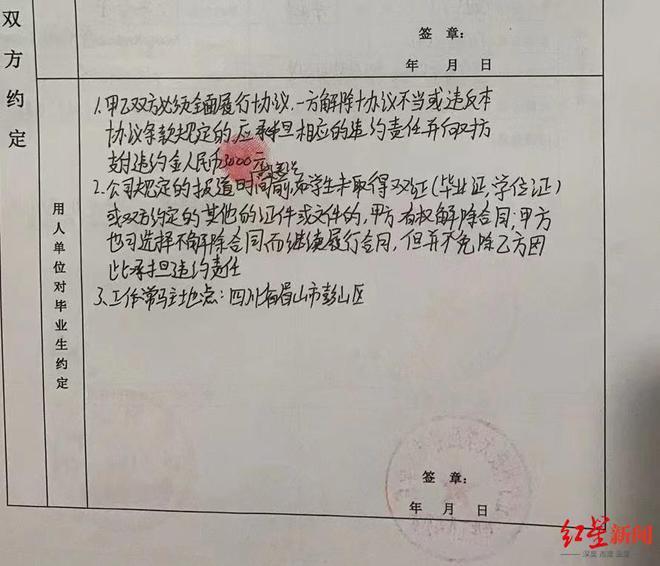 双方约定
签 章：
年 月 日
用人单位对毕业生约定
1.甲乙双方必须全面履行协议.一方解除协议不当或违反本
协议条款规定的,应承担相应的违约责任并向对方
支付违约金人民币3000元
2.公司规定的报道时间前,如学生未取得双证(毕业证,学位证)
或双方约定的其他的证件或文件的,甲方有权解除合同;甲方
也可选择不解除合同而继续履行合同,但并不免除乙方因
此承担违约责任
3.工作常驻地点:四川省眉山市彭山区
签 章：
年 月 日
红星新闻
深度 态度 温度